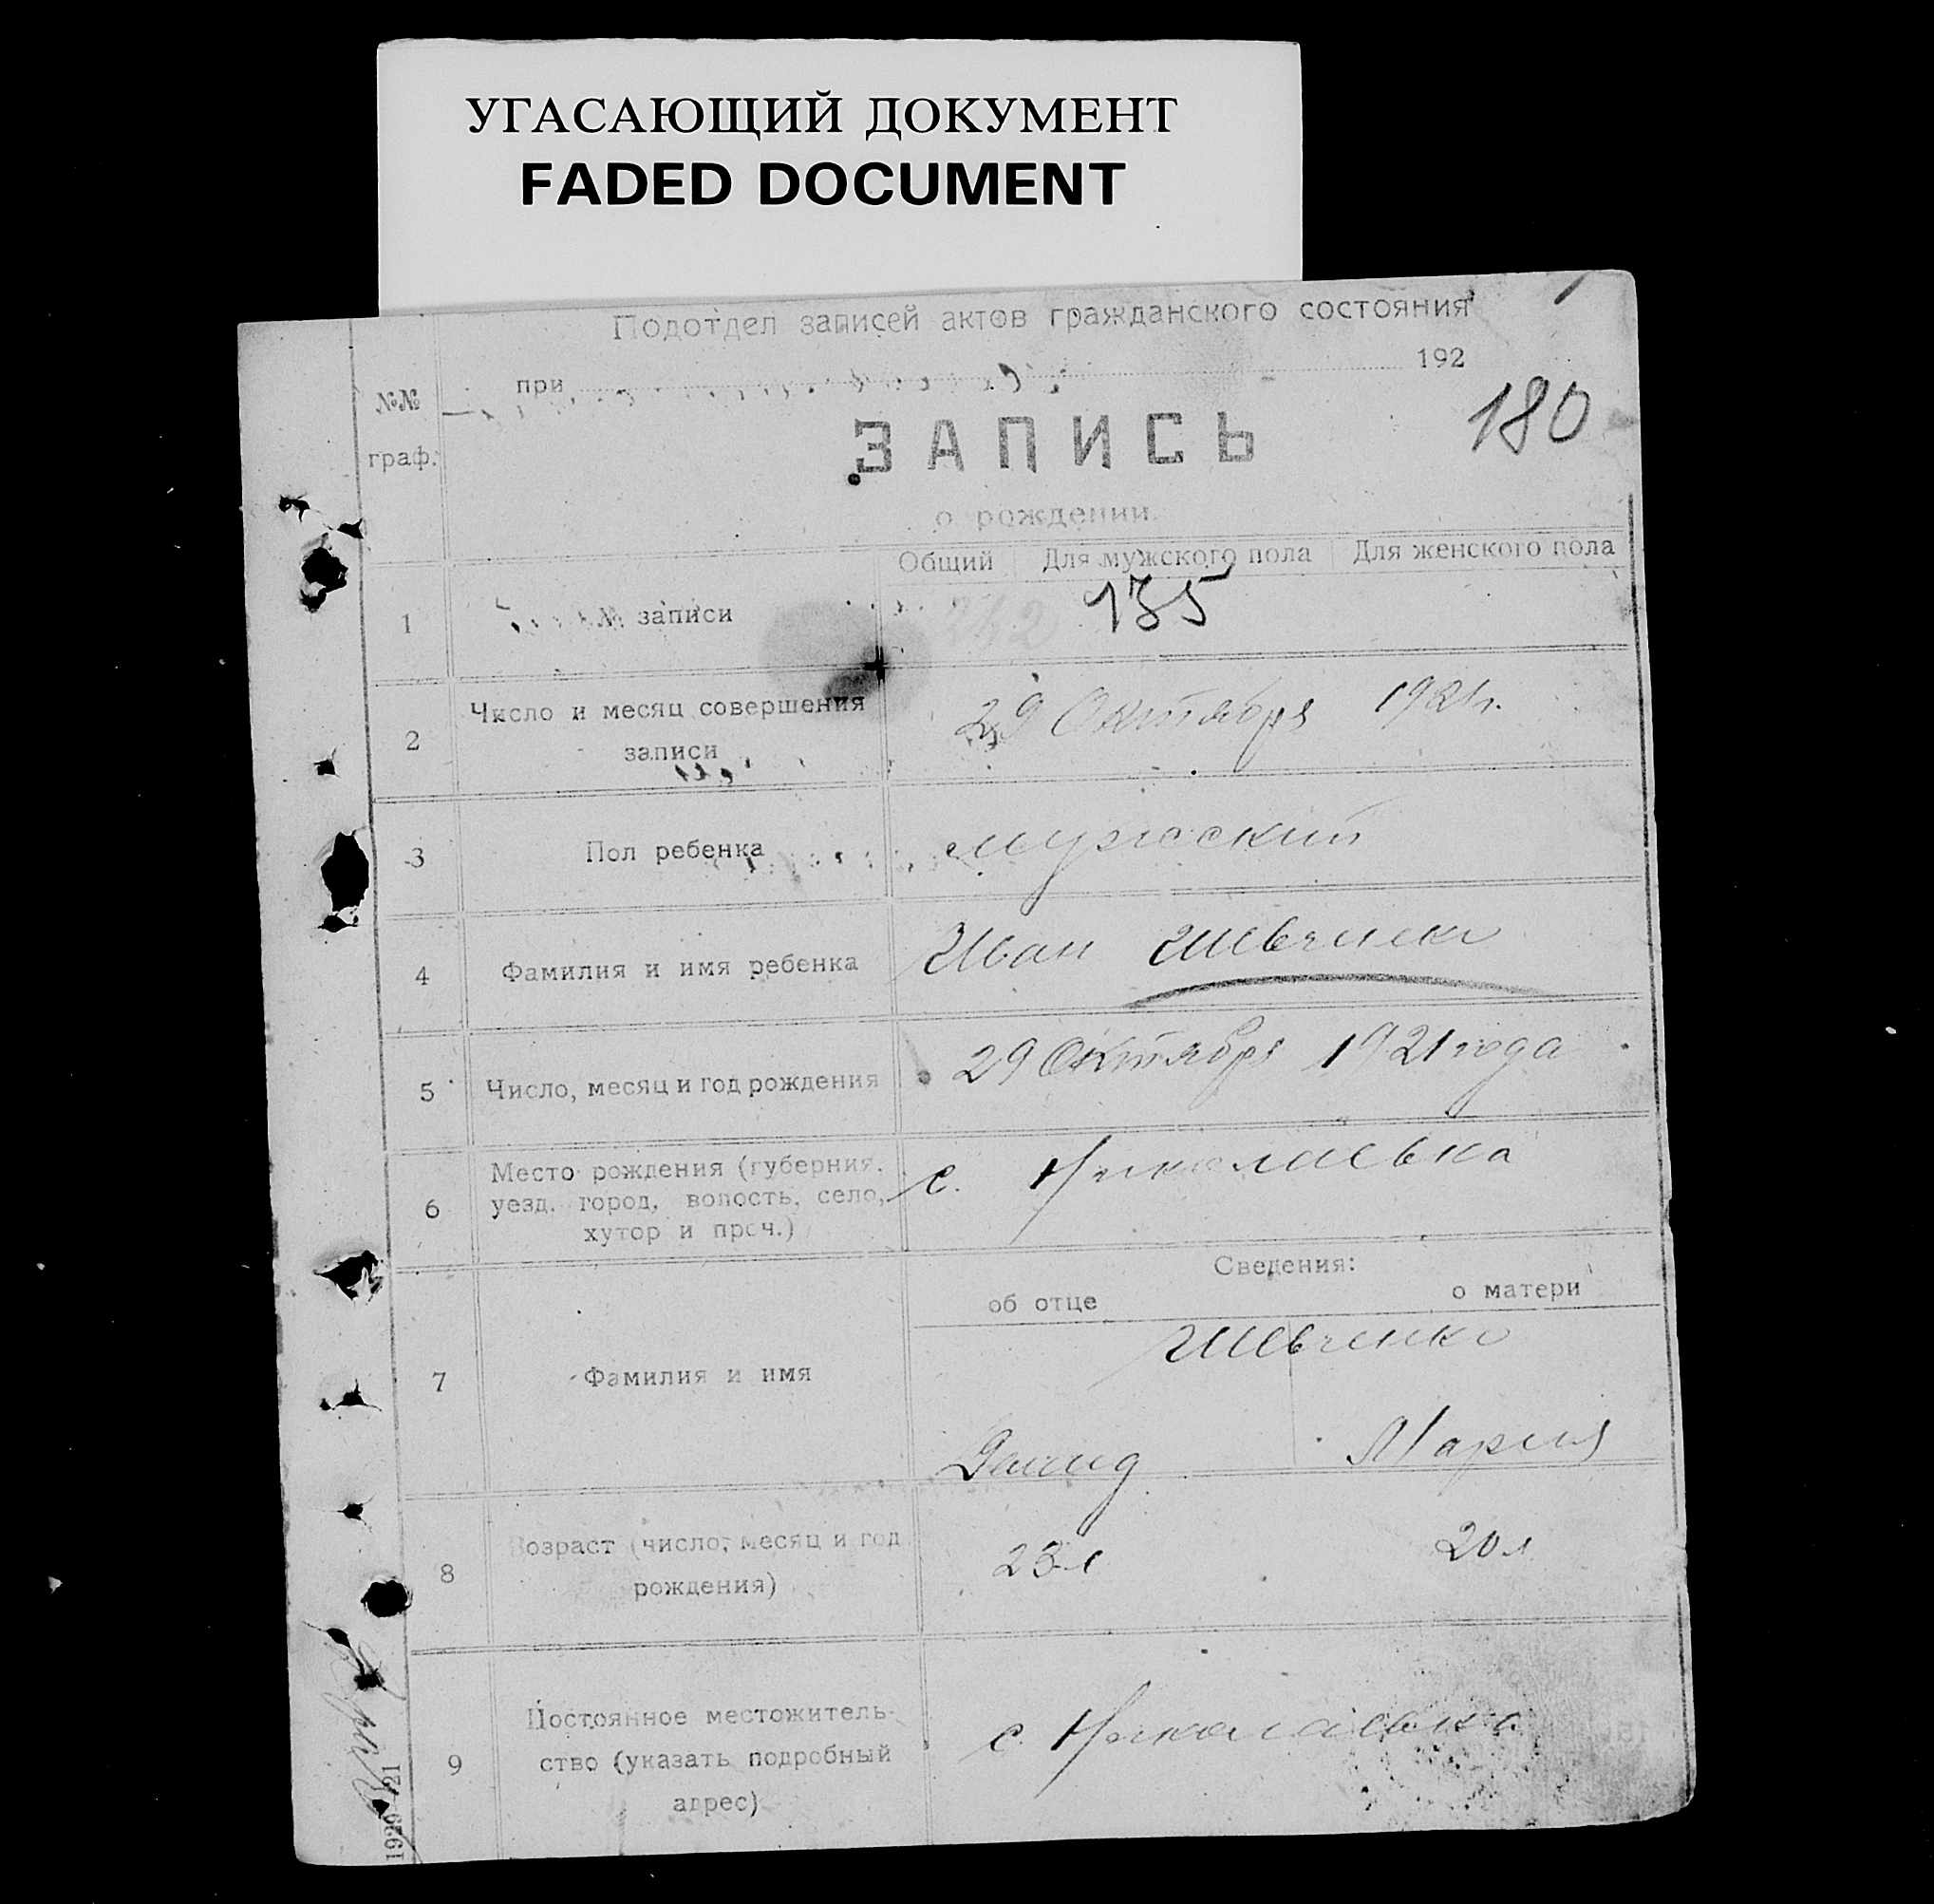 УГАСАЮЩИЙ ДОКУМЕНТ
FADED DOCUMENT
Подотдел записей актов гражданского состояния
при 192
№№
граф.
180
ЗАПИСЬ
о рождении.
Общий Для мужского пола Для женского пола
1 № записи 242 135
2 Число и месяц совершения
записи
29 Октября 1921г.
3 Пол ребенка мужский
4 Фамилия и имя ребенка Иван Шевченко
5 Число, месяц и год рождения 29 Октября 1921 года
6 Место рождения (губерния,
уезд, город, волость, село,
хутор и проч.)
с. Николаевка
Сведения:
об отце о матери
7 Фамилия и имя
Шевченко
Демид Мария
8 Возраст (число, месяц и год
рождения)
23 л 20 л
9 Постоянное местожитель-
ство (указать подробный
адрес)
с. Николаевка